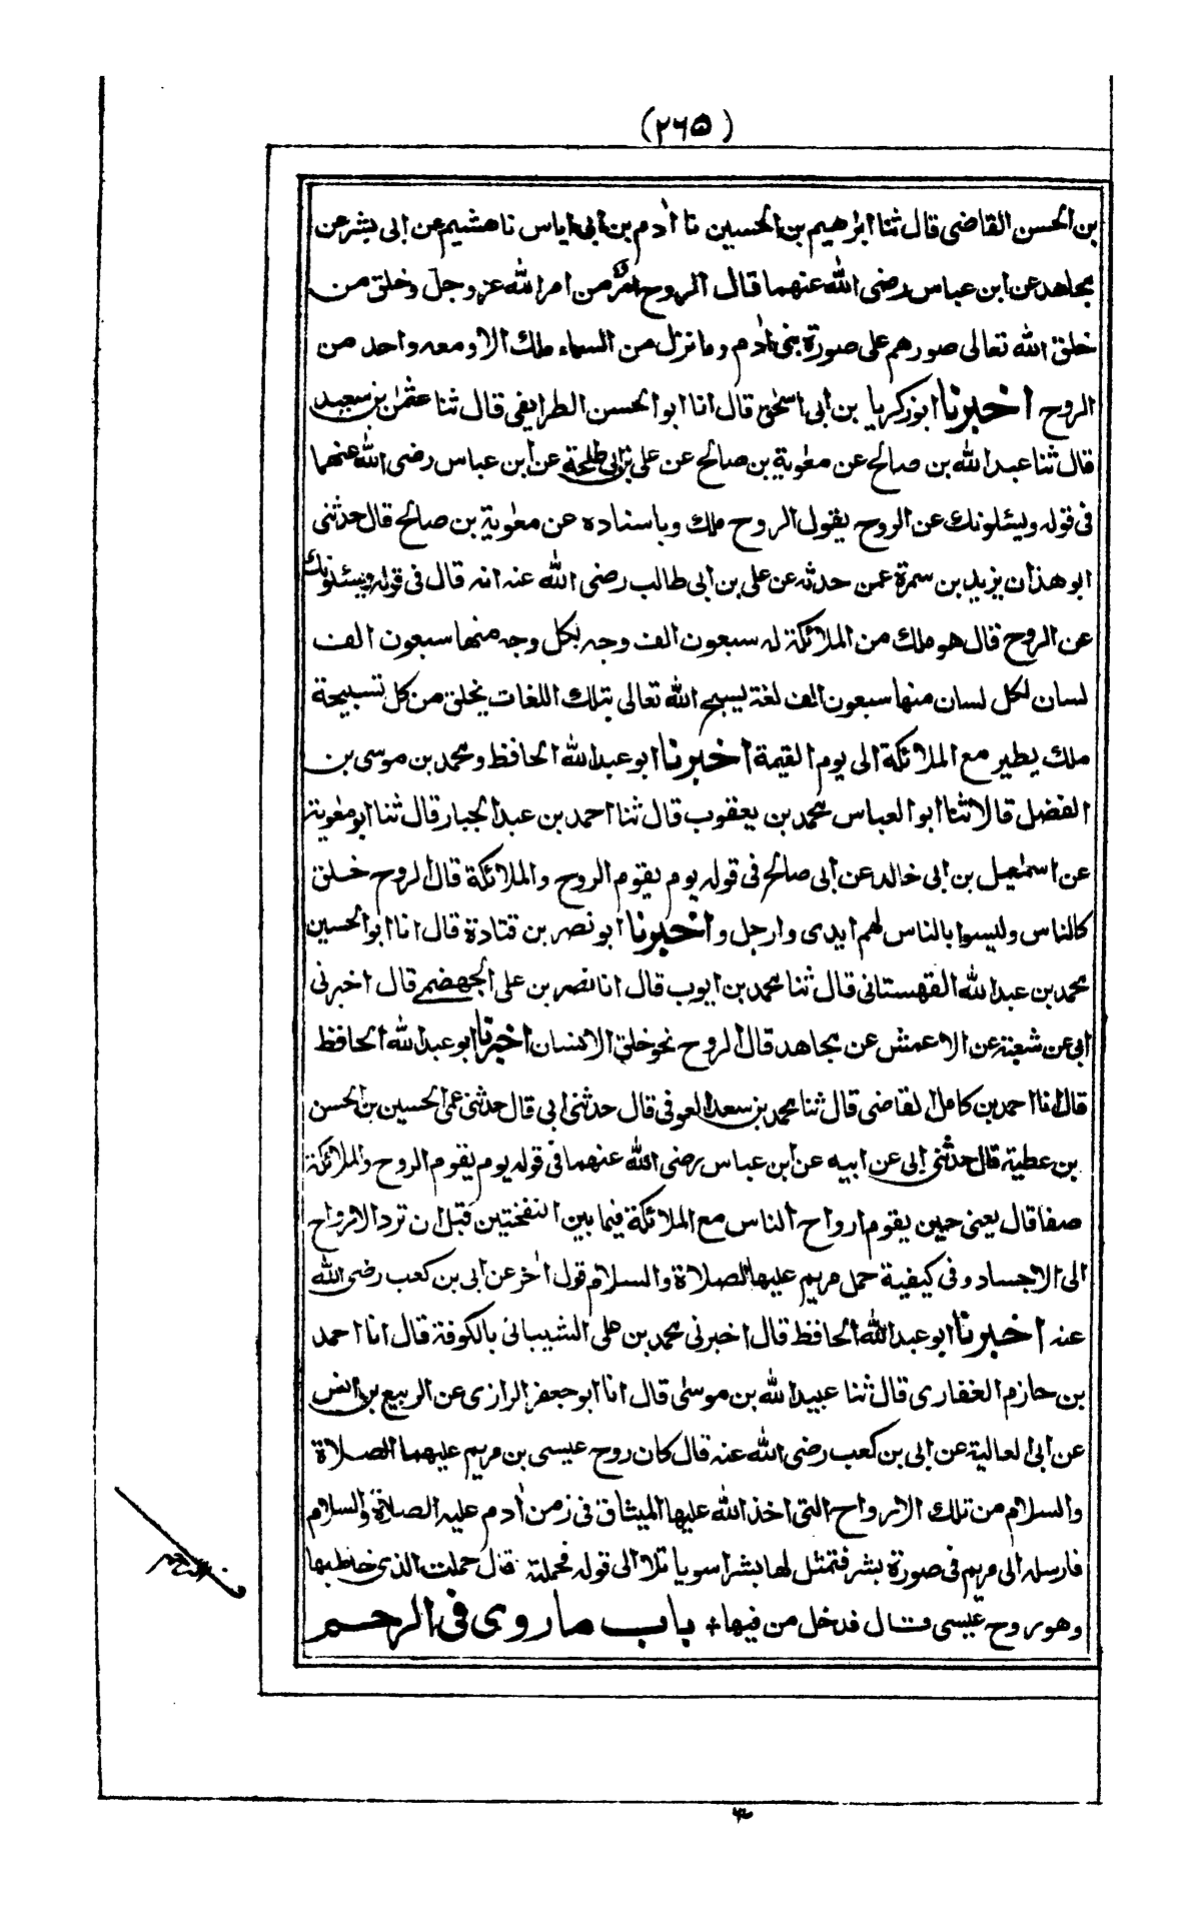 (۲۶۵)
بن الحسن القاضى قال ثنا ابرٰهيم بن الحسين نا اٰدم بن ابى اياس نا هشيم عن ابى بشر عن
مجاهد عن ابن عباس رضى الله عنهما قال الروح امر من امر الله عز وجل وخلق من
خلق الله تعالى صورهم على صورة بنى اٰدم وما نزل من السماء ملك الا ومعه واحد من
الروح اخبرنا ابو زكريا بن ابى اسحٰق قال انا ابو الحسن الطرايفى قال ثنا عثمٰن بن سعيد
قال ثنا عبد الله بن صالح عن معٰوية بن صالح عن على بن ابى طلحة عن ابن عباس رضى الله عنهما
فى قوله ويسئلونك عن الروح يقول الروح ملك وباسناده عن معٰوية بن صالح قال حدثنى
ابو هذان يزيد بن سمرة عمن حدثه عن على بن ابى طالب رضى الله عنه انه قال فى قوله ويسئلونك
عن الروح قال هو ملك من الملائكة له سبعون الف وجه لكل وجه منها سبعون الف
لسان لكل لسان منها سبعون الف لغة يسبح الله تعالى بتلك اللغات يخلق من كل تسبيحة
ملك يطير مع الملائكة الى يوم القيمة اخبرنا ابو عبد الله الحافظ ومحمد بن موسى بن
الفضل قالا ثنا ابو العباس محمد بن يعقوب قال ثنا احمد بن عبد الجبار قال ثنا ابو معٰوية
عن اسمٰعيل بن ابى خالد عن ابى صالح فى قوله يوم يقوم الروح والملائكة قال الروح خلق
كالناس وليسوا بالناس لهم ايدى وارجل واخبرنا ابو نصر بن قتادة قال انا ابو الحسين
محمد بن عبد الله القهستانى قال ثنا محمد بن ايوب قال انا نصر بن على الجهضمى قال اخبرنى
ابى عن شعبة عن الاعمش عن مجاهد قال الروح نحو خلق الانسان اخبرنا ابو عبد الله الحافظ
قال انا احمد بن كامل القاضى قال ثنا محمد بن سعد العوفى قال حدثنى ابى قال حدثنى عمى الحسين بن الحسن
بن عطية قال حدثنى ابى عن ابيه عن ابن عباس رضى الله عنهما فى قوله يوم يقوم الروح والملائكة
صفا قال يعنى حين يقوم ارواح الناس مع الملائكة فيما بين النفختين قبل ان ترد الارواح
الى الاجساد وفى كيفية حمل مريم عليها الصلاة والسلام قول اٰخر عن ابى بن كعب رضى الله
عنه اخبرنا ابو عبد الله الحافظ قال اخبرنى محمد بن على الشيبانى بالكوفة قال انا احمد
بن حازم الغفارى قال ثنا عبيد الله بن موسٰى قال انا ابو جعفر الرازى عن الربيع بن انس
عن ابى العالية عن ابى بن كعب رضى الله عنه قال كان روح عيسى بن مريم عليهما الصلاة
والسلام من تلك الارواح التى اخذ الله عليها الميثاق فى زمن اٰدم عليه الصلاة والسلام
فارسله الى مريم فى صورة بشر فتمثل لها بشرا سويا تلا الى قوله فحملته قال حملت الذى خاطبها
وهو روح عيسى قال فدخل من فيها + باب ما روى فى الرحم